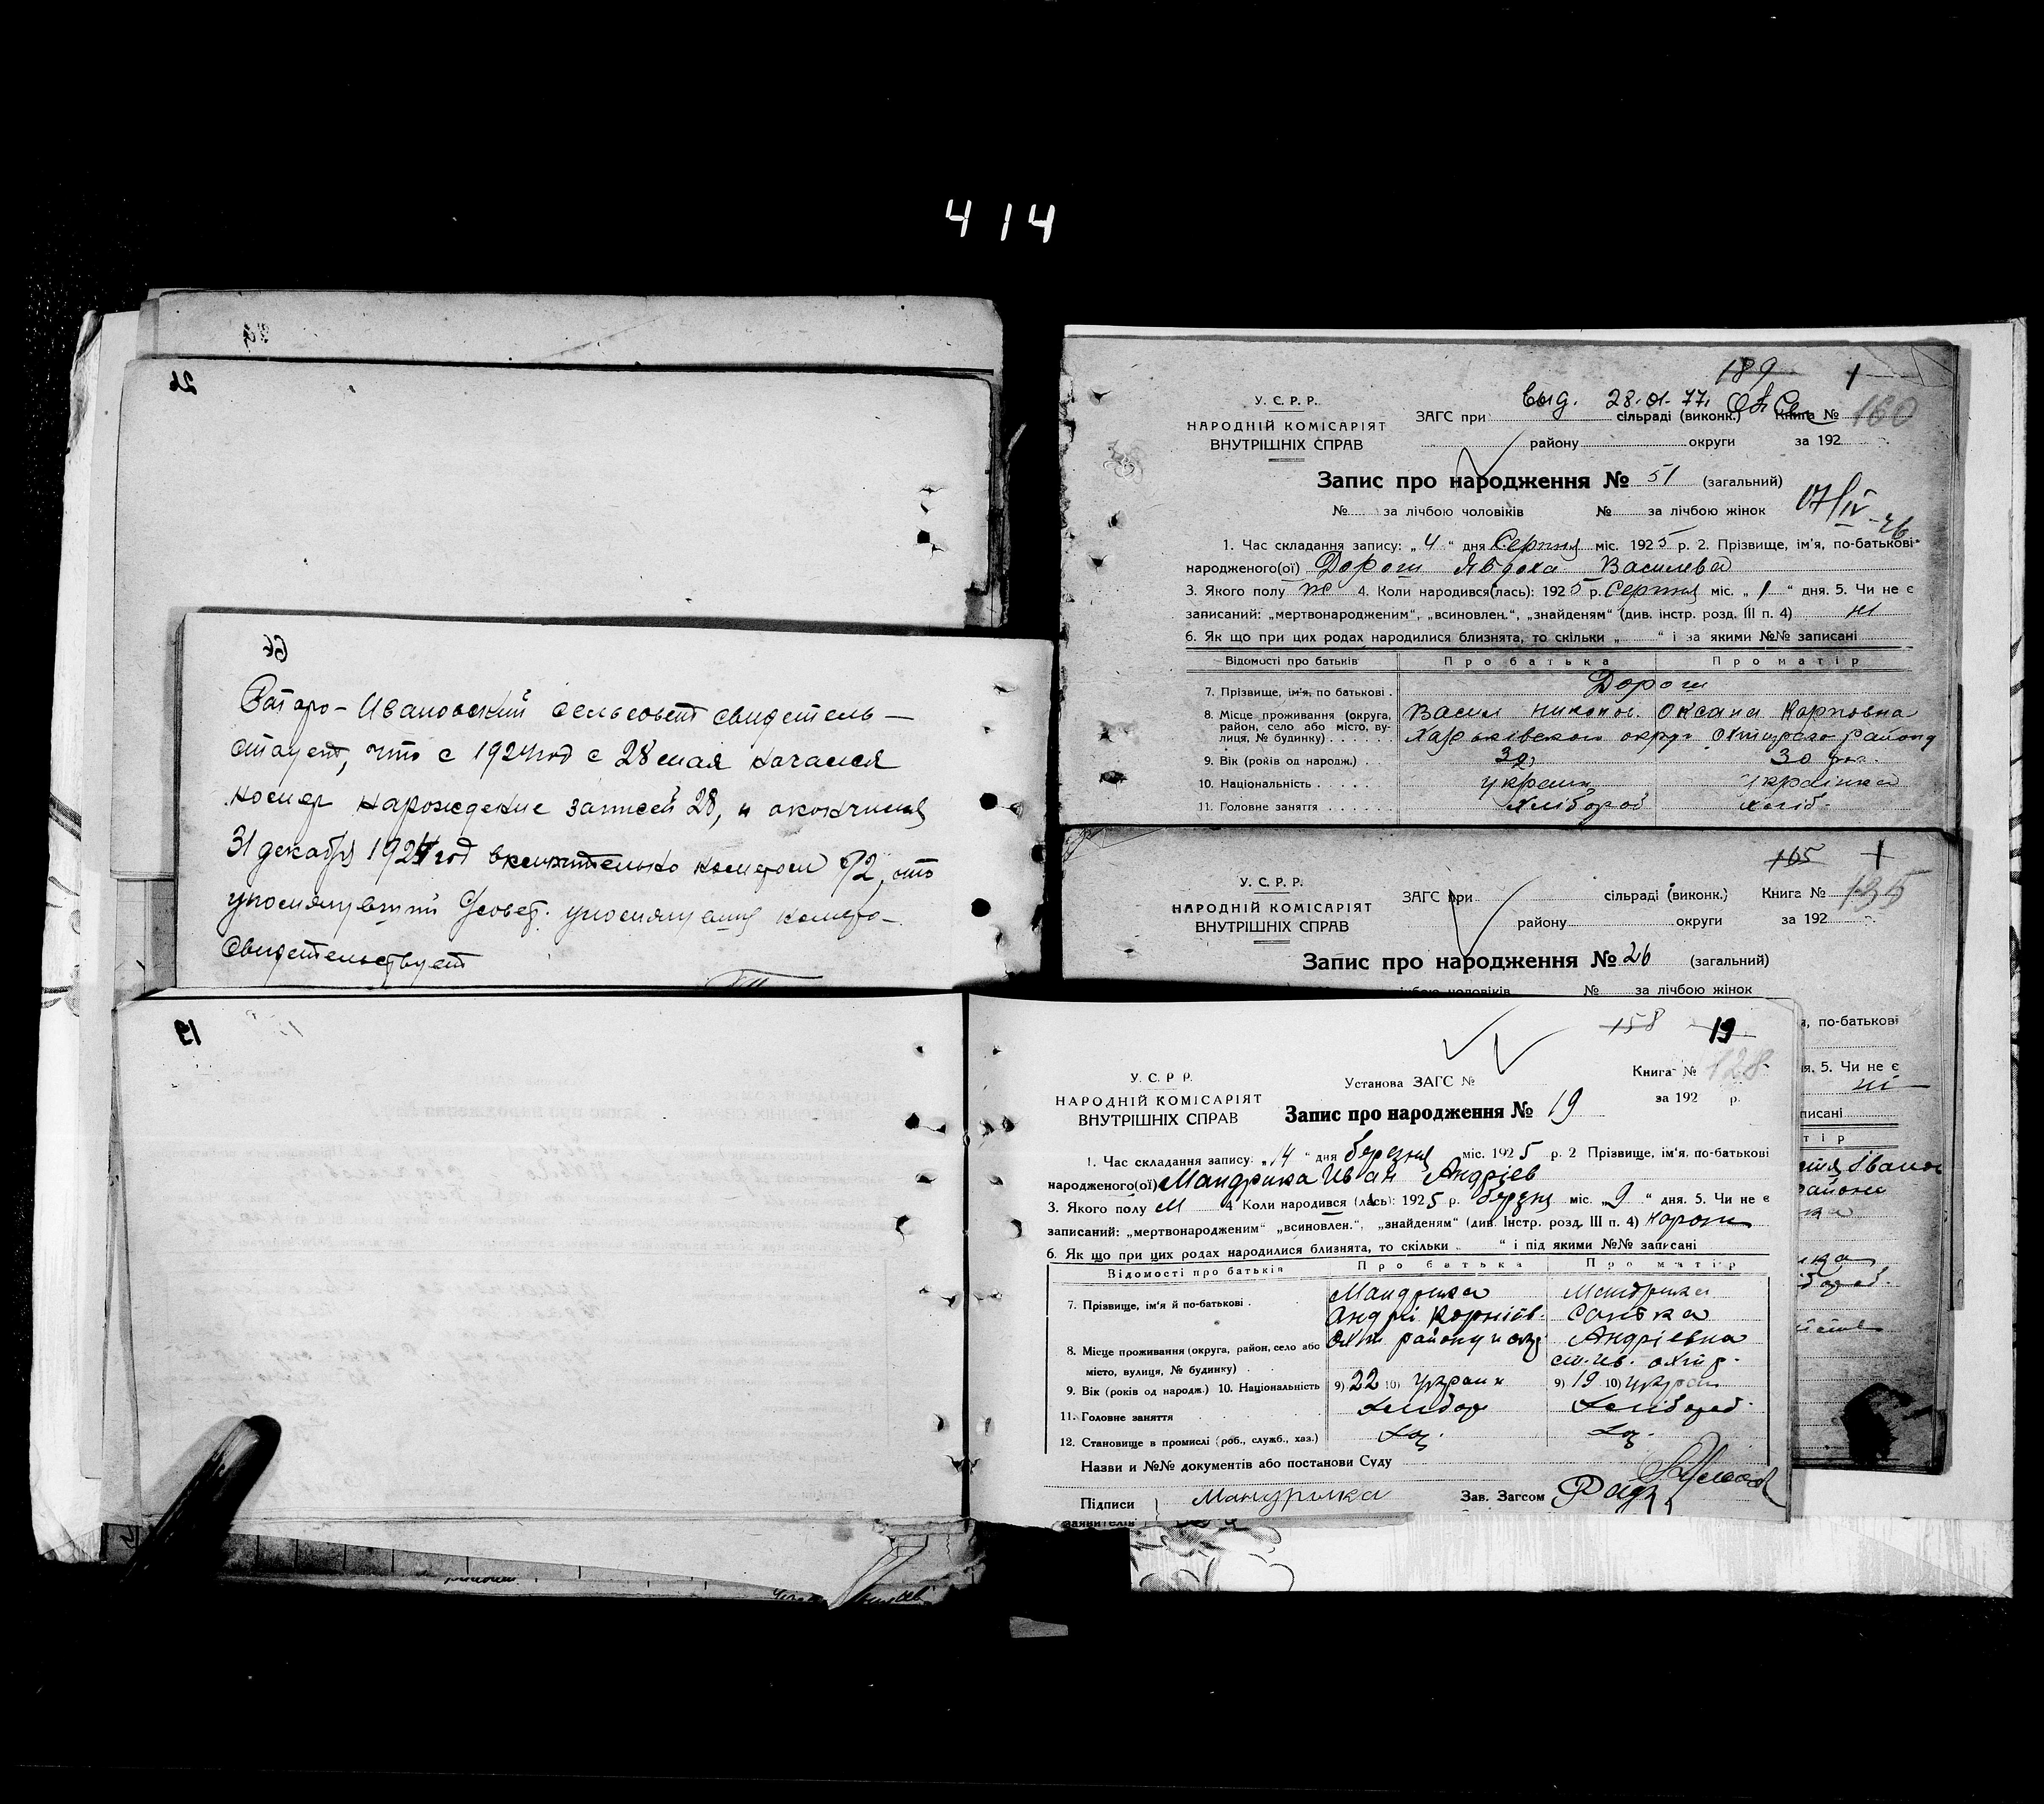 414
26
66
Старо-Ивановский сельсовет свидетель-
ствует, что с 1924 год с 28 мая начался
номер нарождение записей 28, и окончился
31 декабря 1924 год включительно номером 92, что
упосмянувший номера
свидетельствует
19
189 1
У. С. Р. Р.
НАРОДНІЙ КОМІСАРІЯТ
ВНУТРІШНІХ СПРАВ
Выд. 28.01.77.
ЗАГС при сільраді (виконк.) Книга № 160
району округи за 192
Запис про народження № 51 (загальний)
№ за лічбою чоловіків № за лічбою жінок
17/IV-76
1. Час складання запису: „4“ дня Серпня міс. 1925 р. 2. Прізвище, ім'я, по-батькові
народженого(ої) Дорош Явдоха Василева
3. Якого полу ж 4. Коли народився(лась): 1925 р. Серпня міс. „1“ дня. 5. Чи не є
записаний: „мертвонародженим“, „всиновлен.“, „знайденям“ (див. інстр. розд. III п. 4) ні
6. Як що при цих родах народилися близнята, то скільки „ “ і за якими №№ записані
Відомості про батьків Про батька Про матір
7. Прізвище, ім'я, по батькові . Дорош
8. Місце проживання (округа, Васил Никонов. Оксана Карповна
район, село або місто, ву- Харьківского округ Охтирско району
лиця, № будинку)
9. Вік (років од народж.) . 32 30 рок.
10. Національність украин українка
11. Головне заняття хлібороб хліб.
165 1
У. С. Р. Р.
НАРОДНІЙ КОМІСАРІЯТ
ВНУТРІШНІХ СПРАВ
ЗАГС при сільраді (виконк.) Книга № 135
району округи за 192
Запис про народження № 26 (загальний)
№ за лічбою жінок
по-батькові
5. Чи не є
ні
писані
тір
158 19
У. С. Р. Р.
НАРОДНІЙ КОМІСАРІЯТ
ВНУТРІШНІХ СПРАВ
Установа ЗАГС № Книга № 128
за 192 р.
Запис про народження № 19
1. Час складання запису: „14“ дня березня міс. 1925 р. 2 Прізвище, ім'я, по-батькові
народженого(ої) Мандрика Иван Андріев
3. Якого полу М 4 Коли народився (лась): 1925 р. березня міс. „9“ дня. 5. Чи не є
записаний: „мертвонародженим“ „всиновлен.“, „знайденям“ (див. Інстр. розд. III п. 4)
6. Як що при цих родах народилися близнята, то скільки „ “ і під якими №№ записані
Відомості про батьків Про батька Про матір
7. Прізвище, ім'я й по-батькові . Мандрика Мандрика
Андрій Корніїв. Сонька
8. Місце проживання (округа, район, село або Охти району Андріевна
місто, вулиця, № будинку) . ст.ив. охтир.
9. Вік (років од народж.) 10. Національність 9) 22 10) Украин 9) 19 10) Украи
11. Головне заняття Хлібор Хлібороб.
12. Становище в промислі (роб., служб., хаз.) Хаз. Хаз.
Назви и №№ документів або постанови Суду
Підписи Мандрика Зав. Загсом
заявителів